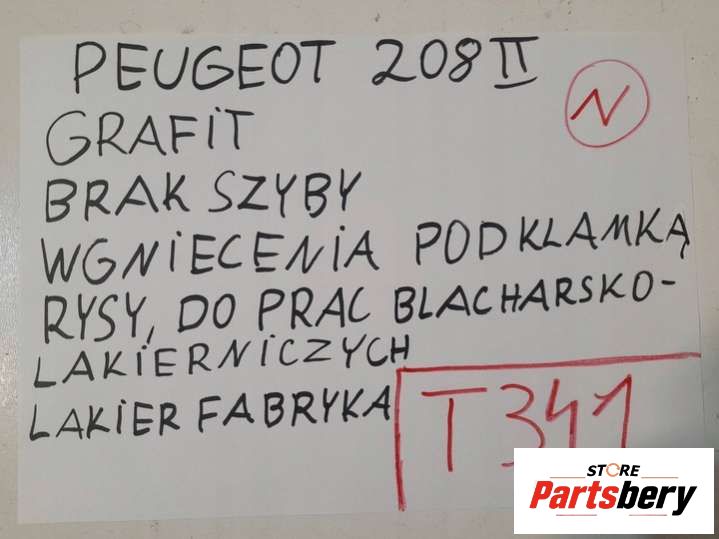 PEUGEOT 208 II
N
GRAFIT
BRAK SZYBY
WGNIECENIA POD KLAMKĄ
RYSY, DO PRAC BLACHARSKO-
LAKIERNICZYCH
LAKIER FABRYKA
T341
STORE
Partsbery